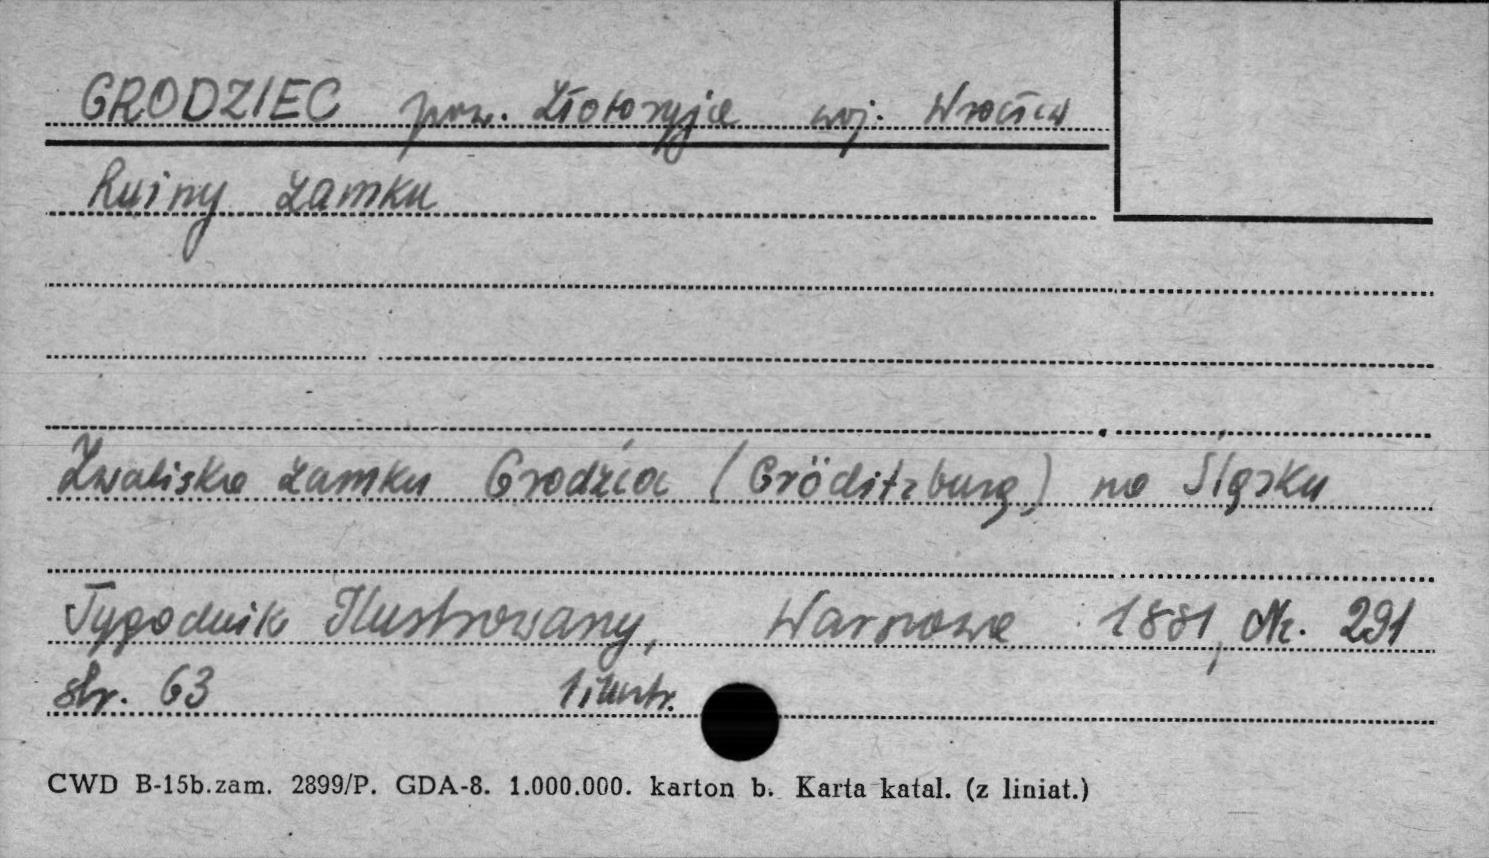 GRODZIEC pow. Złotoryja woj. Wrocław
Ruiny zamku
Zwaliska zamku Grodźca (Gröditzburg) na Śląsku
Tygodnik Ilustrowany, Warszawa 1881, Nr. 291
str. 63 1 ilustr.
CWD B-15b.zam. 2899/P. GDA-8. 1.000.000. karton b. Karta katal. (z liniat.)